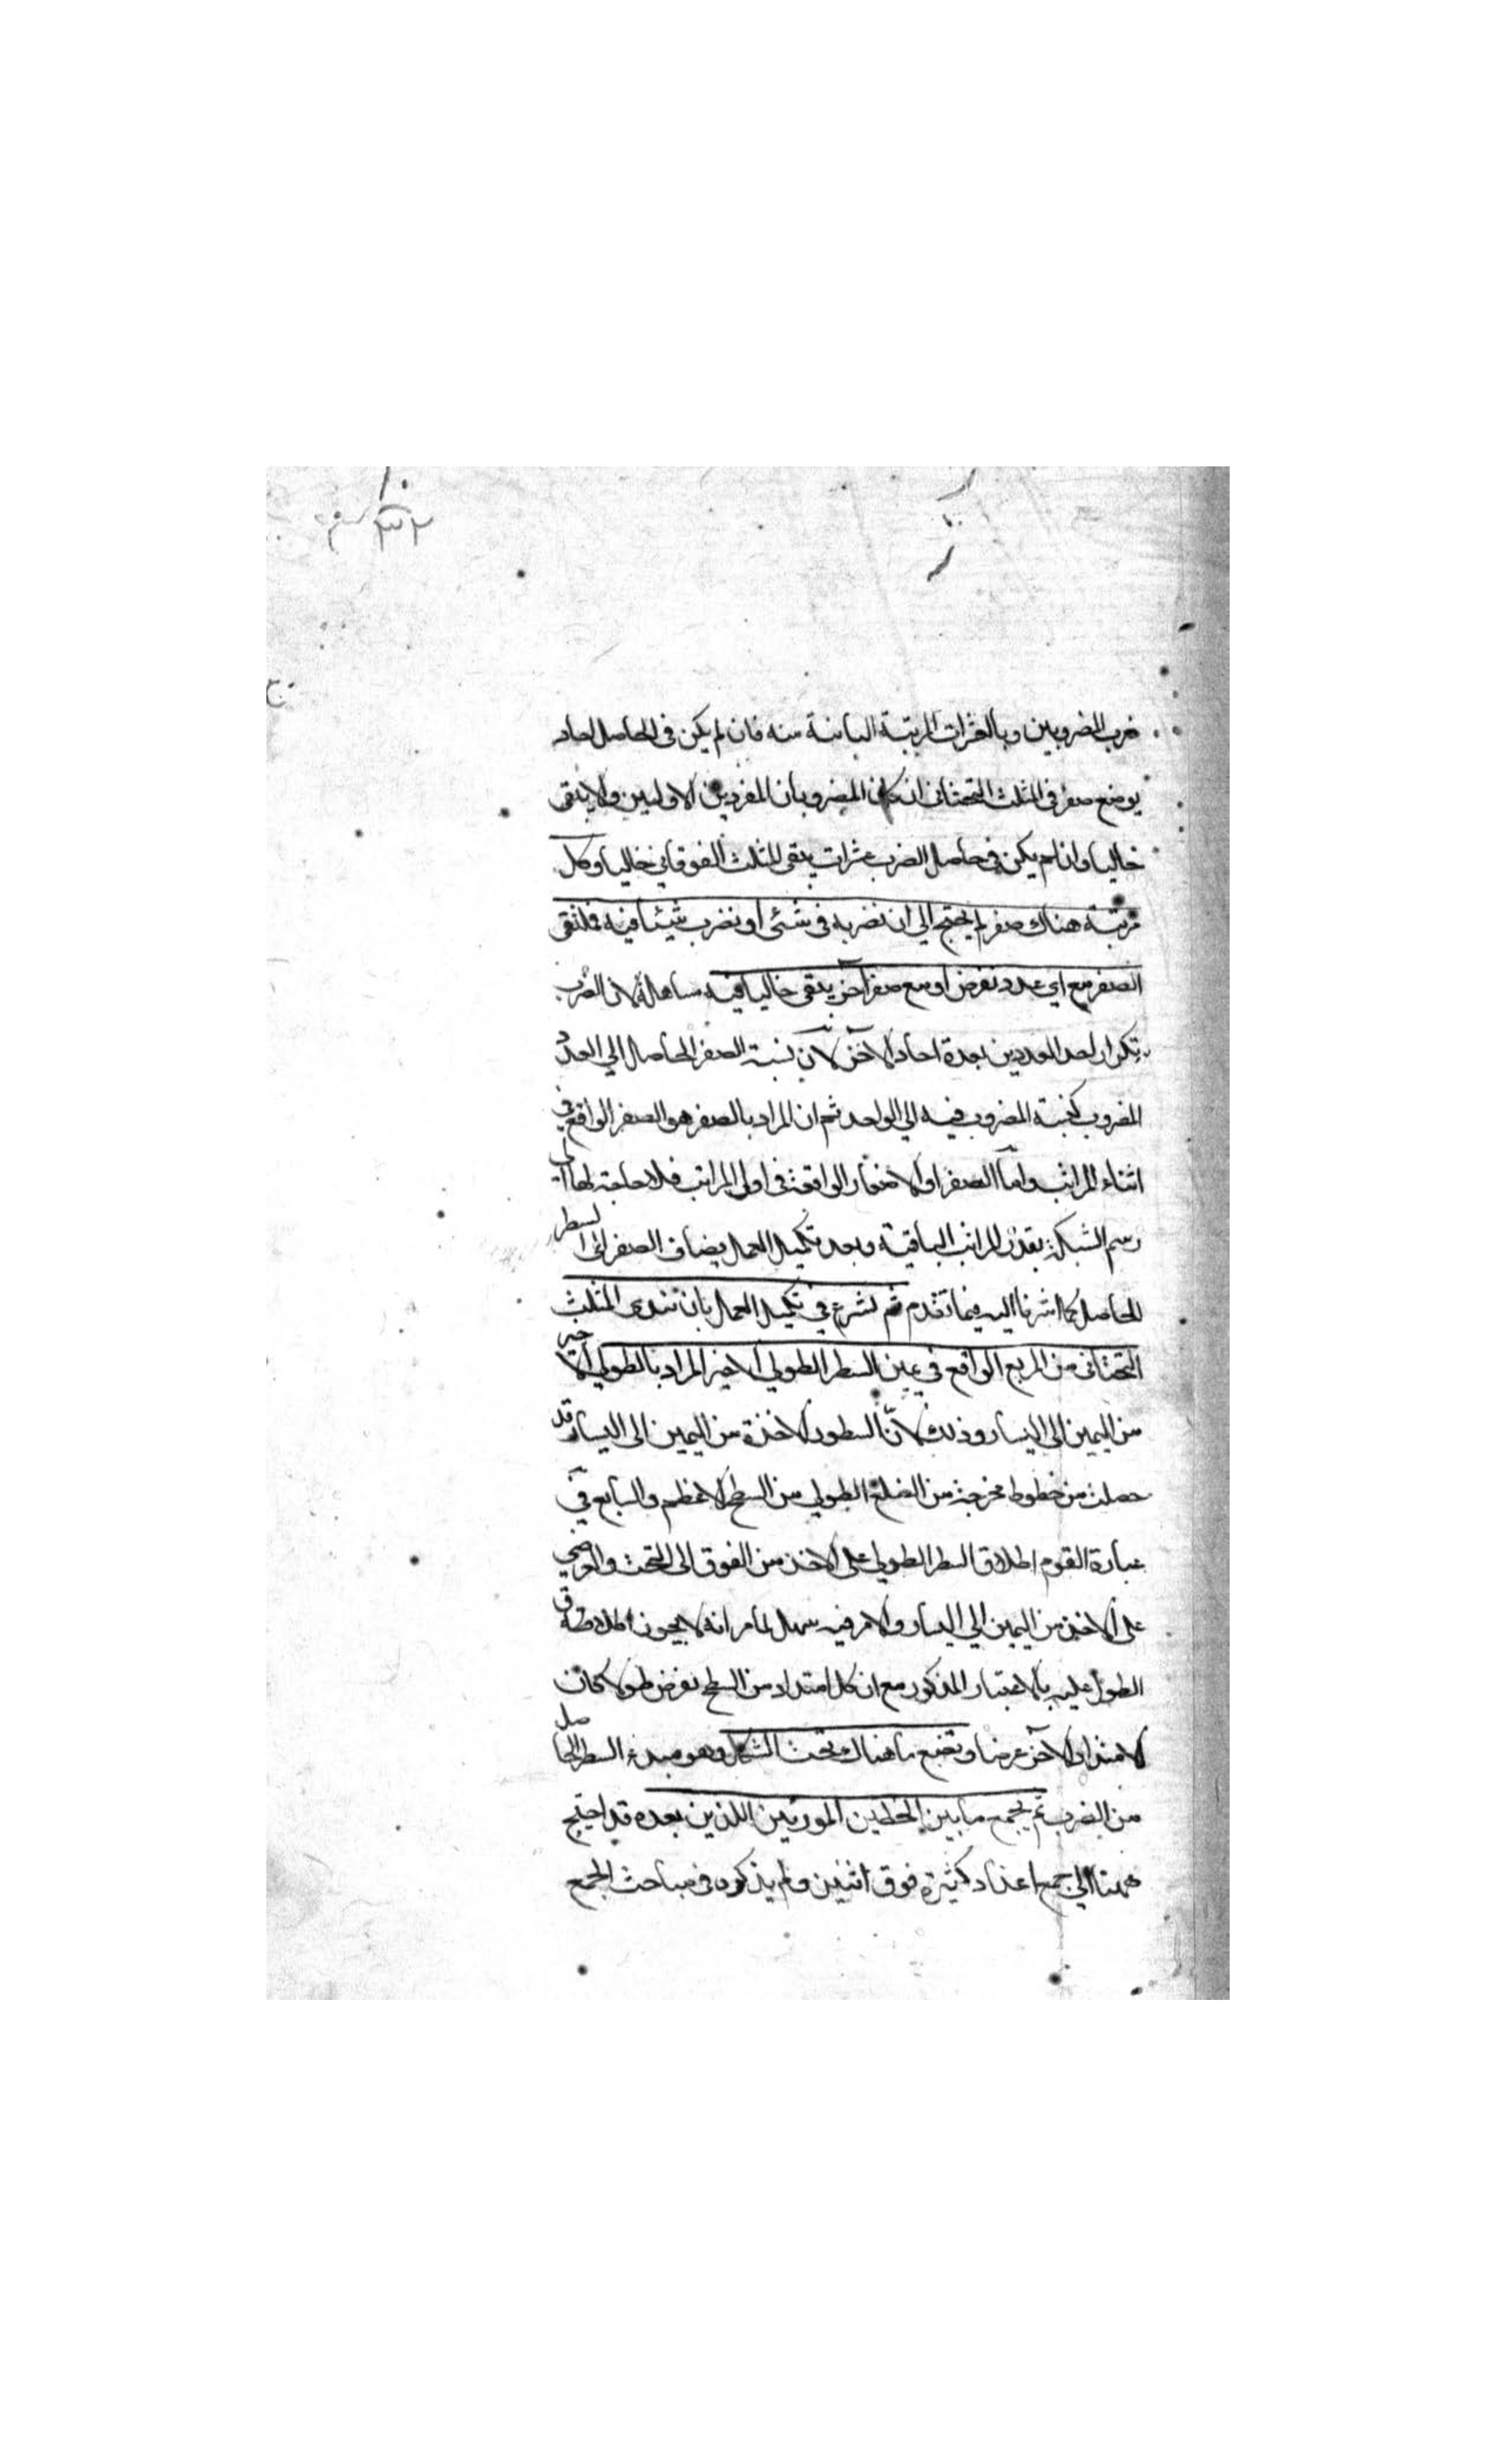 ضرب المضروبين وبالعشرات المرتبة الباينة منه فان لم يكن في الحاصل احاد
يوضع صفر في المثلث التحتاني ان كان المضروبان المفردين الاوليين والا يبقى
خاليا وان لم يكن في حاصل الضرب عشرات يبقى المثلث الفوقاني خاليا وكل
مرتبة هناك صفر لم يحتج الى ان نضربه في شئى او نضرب شيئا فيه فملتقى
الصفر مع اي عدد نفرض او مع صفر آخر يبقى خاليا فيه مساهلة لان الضرب
تكرار احد العددين بعدة احاد الآخر لان نسبة الصفر الحاصل الي العدد
المضروب كنسبة المضروب فيه الي الواحد ثم ان المراد بالصفر هو الصفر الواقع في
اثناء المراتب واما الصفر او الاصفار الواقعة في اولى المراتب فلا حاجة لها الى
رسم الشبكة بقدر المراتب الباقية وبعد تكميل العمل يضاف الصفر الى السطر
الحاصل كما اشرنا اليه فيما تقدم ثم نشرع في تكميل العمل بان نبتدى المثلث
التحتاني من المربع الواقع في يمين السطر الطولي الاخير المراد بالطولي الآخذ
من اليمين الى اليسار وذلك لانّ السطور الآخذة من اليمين الى اليسار قد
حصلت من خطوط مخرجة من الضلع الطولي من السطح الاعظم والشايع في
عبارة القوم اطلاق السطر الطولي على الآخذ من الفوق الى التحت والعرضي
على الآخذ من اليمين الي اليسار والامر فيه سهل لما مر انه لا يجوز اطلاق
الطول عليه بالاعتبار المذكور مع ان كل امتداد من السطح نفرض طولا كان
الامتداد الآخر عرضا ونضع ما هناك تحت الشكل وهو مبدء السطر الحاصل
من الضرب ثم يجمع ما بين الخطين الموربين اللذين بعده قد احتيج
ههنا الي جمع اعداد كثيرة فوق اثنين ولم يذكره في مباحث الجمع